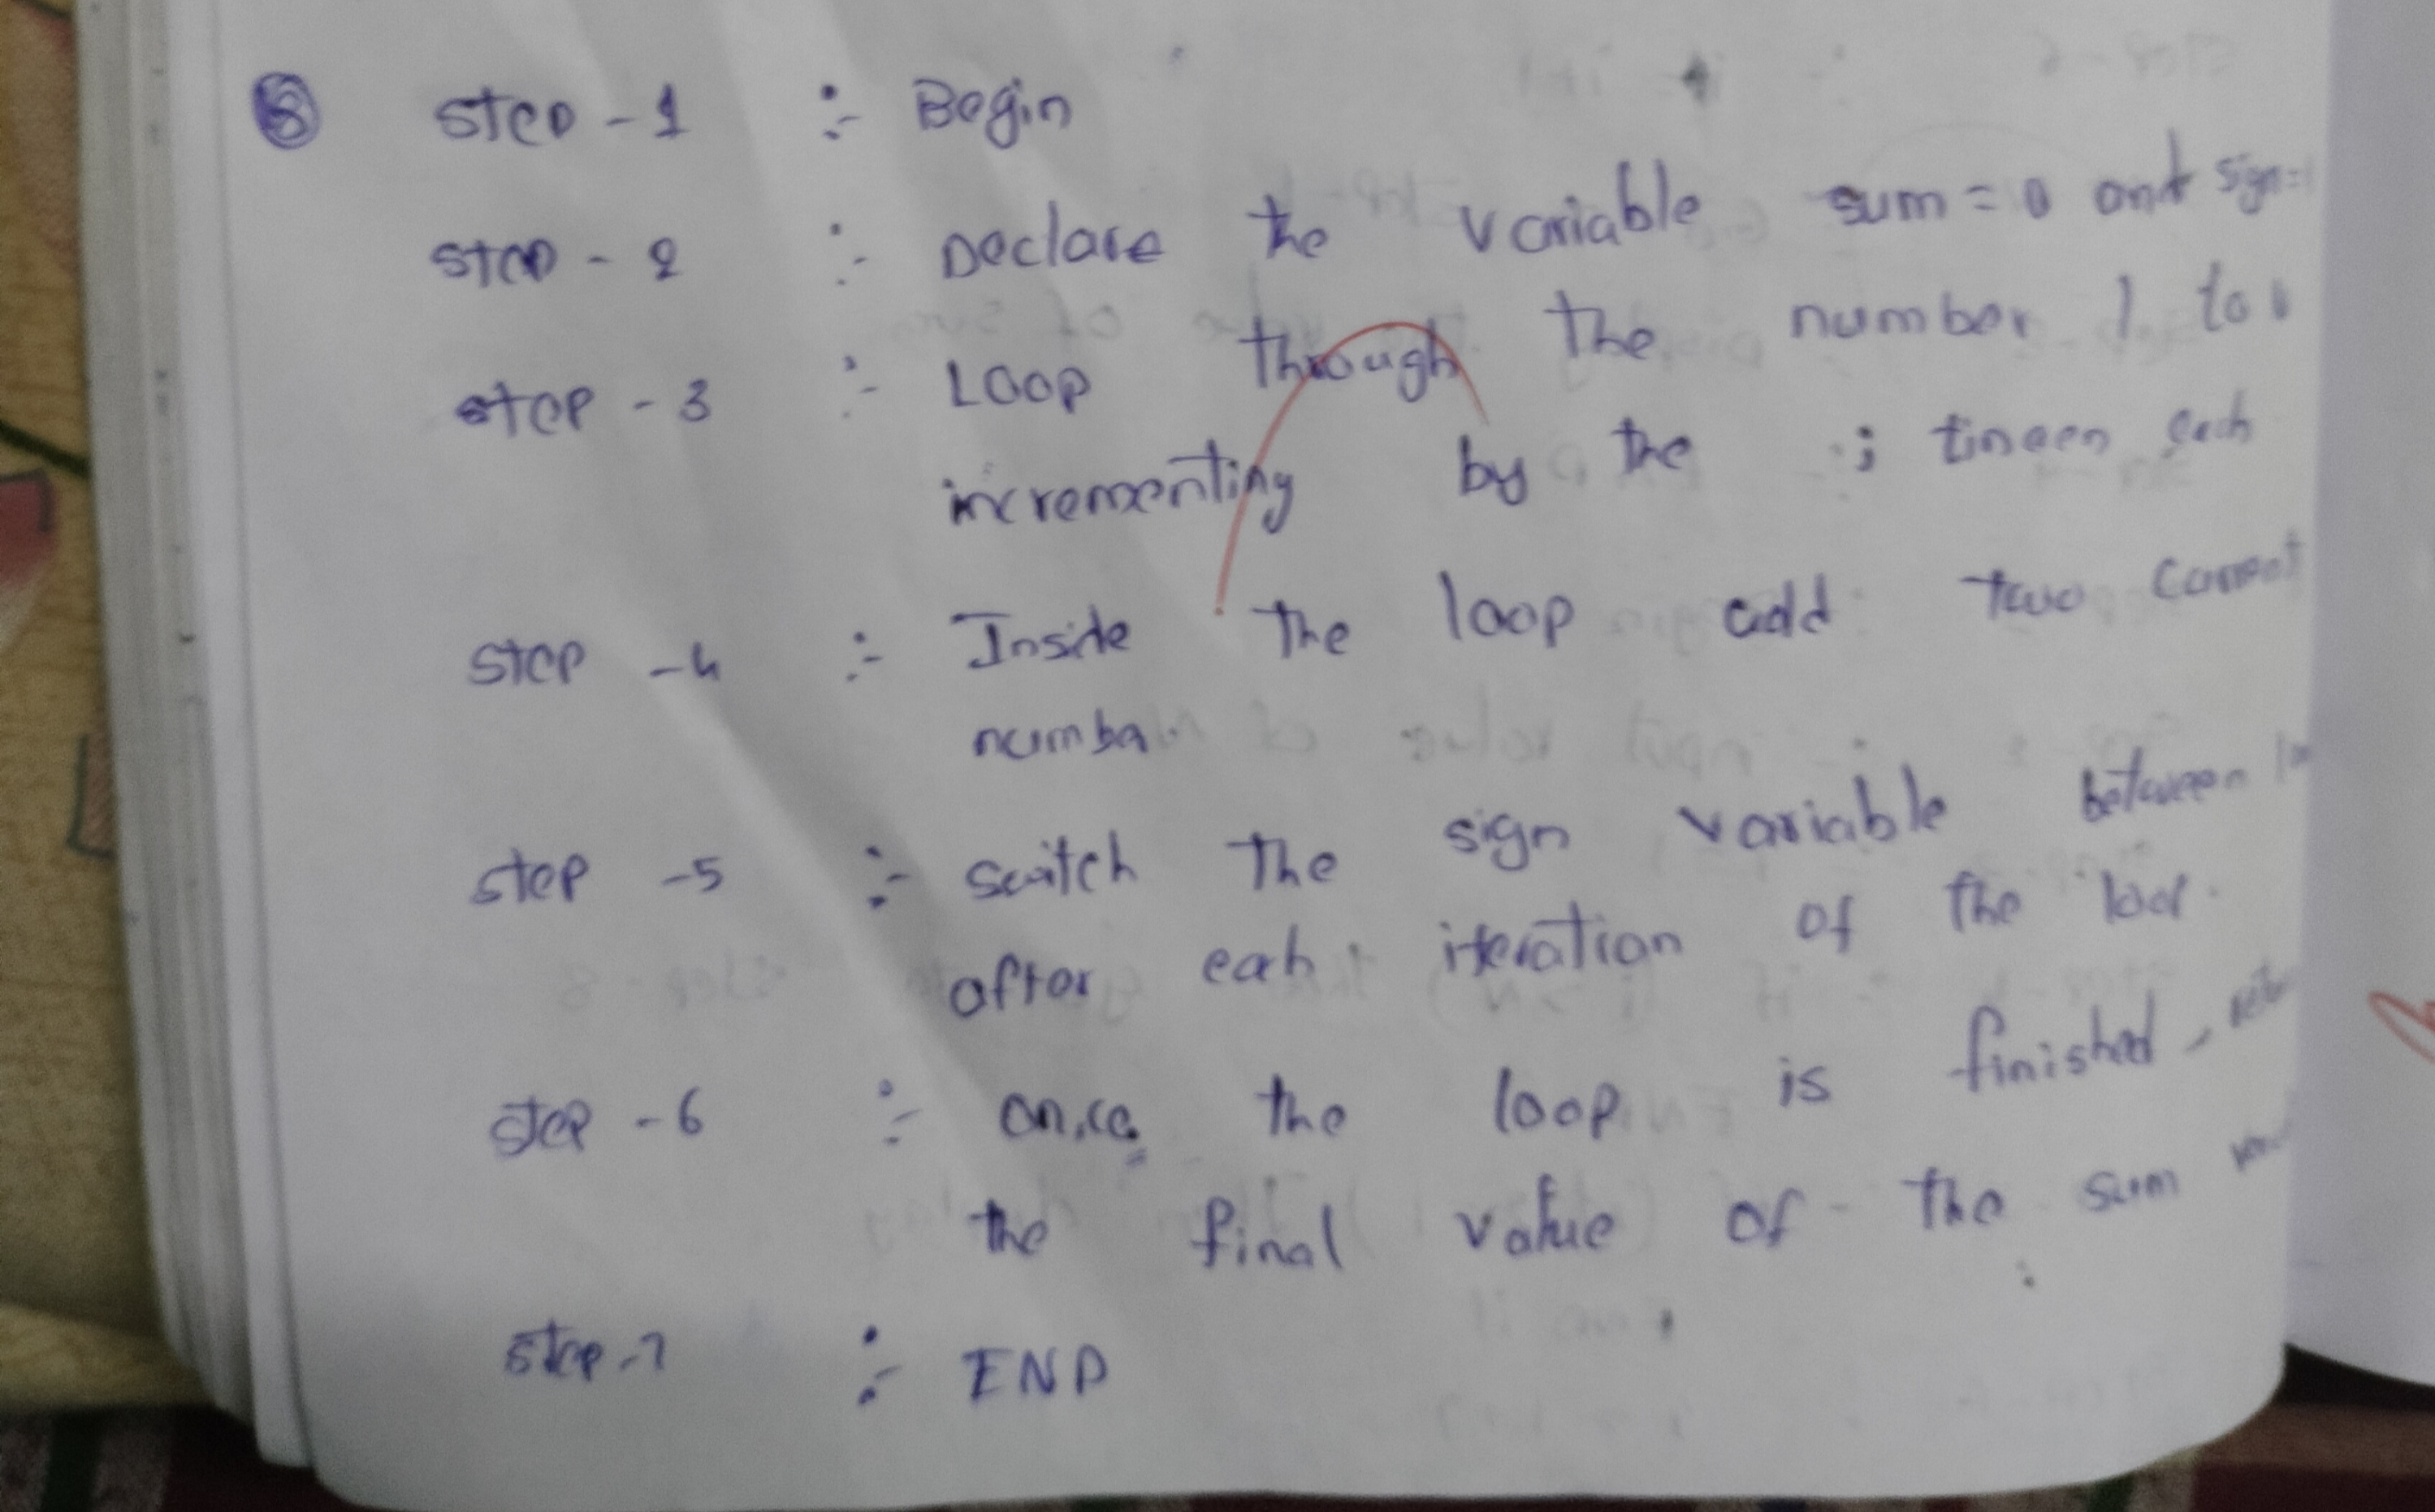 8 step - 1 :- Begin
step - 2 :- Declare the variable sum = 0 and sign =
step - 3 :- Loop through the number 1 to
incrementing by the each
step - 4 :- Inside the loop add two current
number
step - 5 :- switch the sign variable between
after eah iteration of the loop.
step - 6 :- once the loop is finished,
the final value of the sum
step - 7 :- END